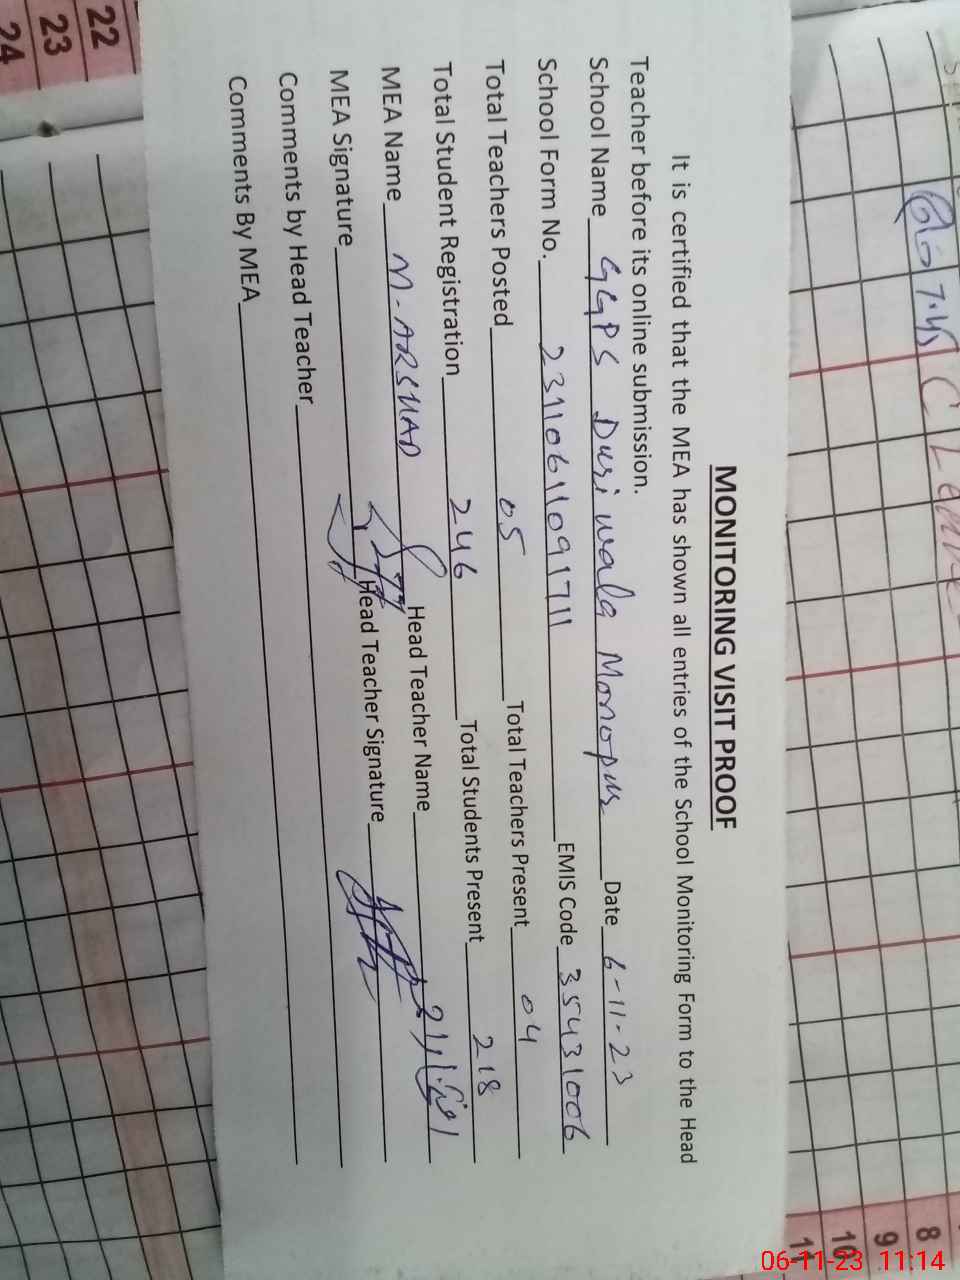 MONITORING VISIT PROOF
It is certified that the MEA has shown all entries of the School Monitoring Form to the Head
Teacher before its online submission.
School Name GGPS Duri wala Monopur Date 6-11-23
School Form No. 23110611091711 EMIS Code 35431006
Total Teachers Posted 05 Total Teachers Present 04
Total Student Registration 246 Total Students Present 218
MEA Name M. ARSHAD Head Teacher Name
MEA Signature Head Teacher Signature
Comments by Head Teacher
Comments By MEA
22
23
24
8
9
10
11
06-11-23 11:14